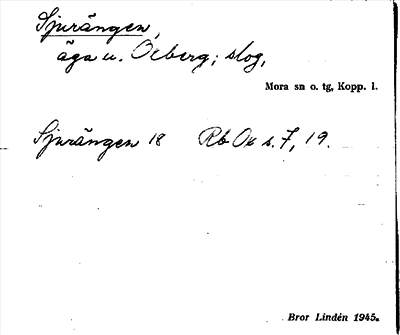 Sjurängen,
äga u. Oxberg; slog,
Mora sn o. tg, Kopp. l.
Sjurängen 18 Rb Ox s. 7, 19.
Bror Lindén 1945.